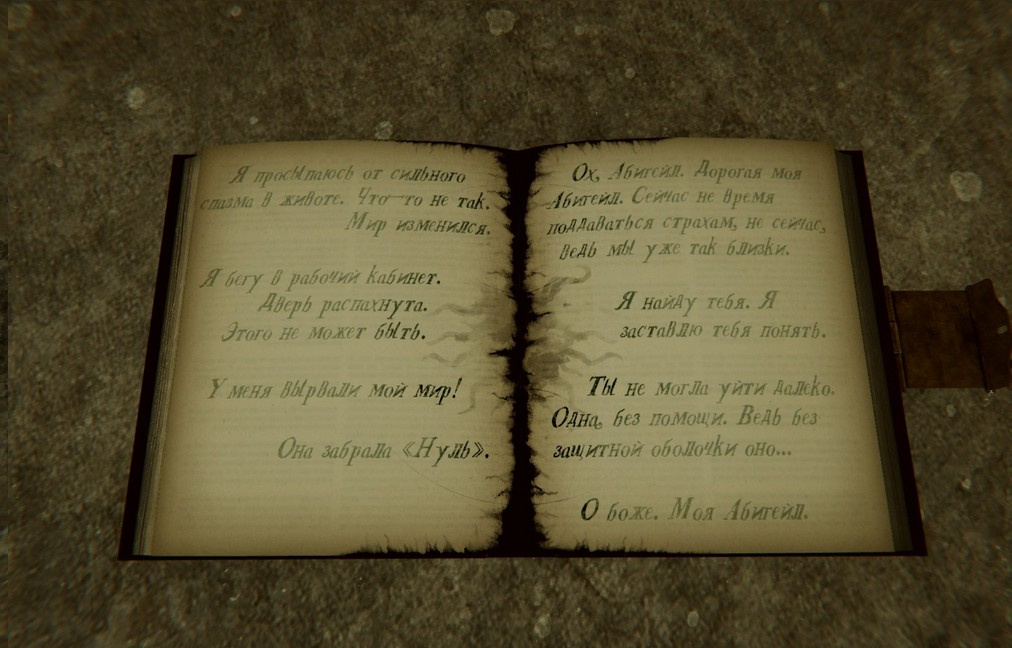 Я просыпаюсь от сильного
спазма в животе. Что-то не так.
Мир изменился.
Я бегу в рабочий кабинет.
Дверь распахнута.
Этого не может быть.
У меня вырвали мой мир!
Она забрала «Нуль».
Ох, Абигейл. Дорогая моя
Абигейл. Сейчас не время
поддаваться страхам, не сейчас,
ведь мы уже так близки.
Я найду тебя. Я
заставлю тебя понять.
Ты не могла уйти далеко.
Одна, без помощи. Ведь без
защитной оболочки оно...
О боже. Моя Абигейл.